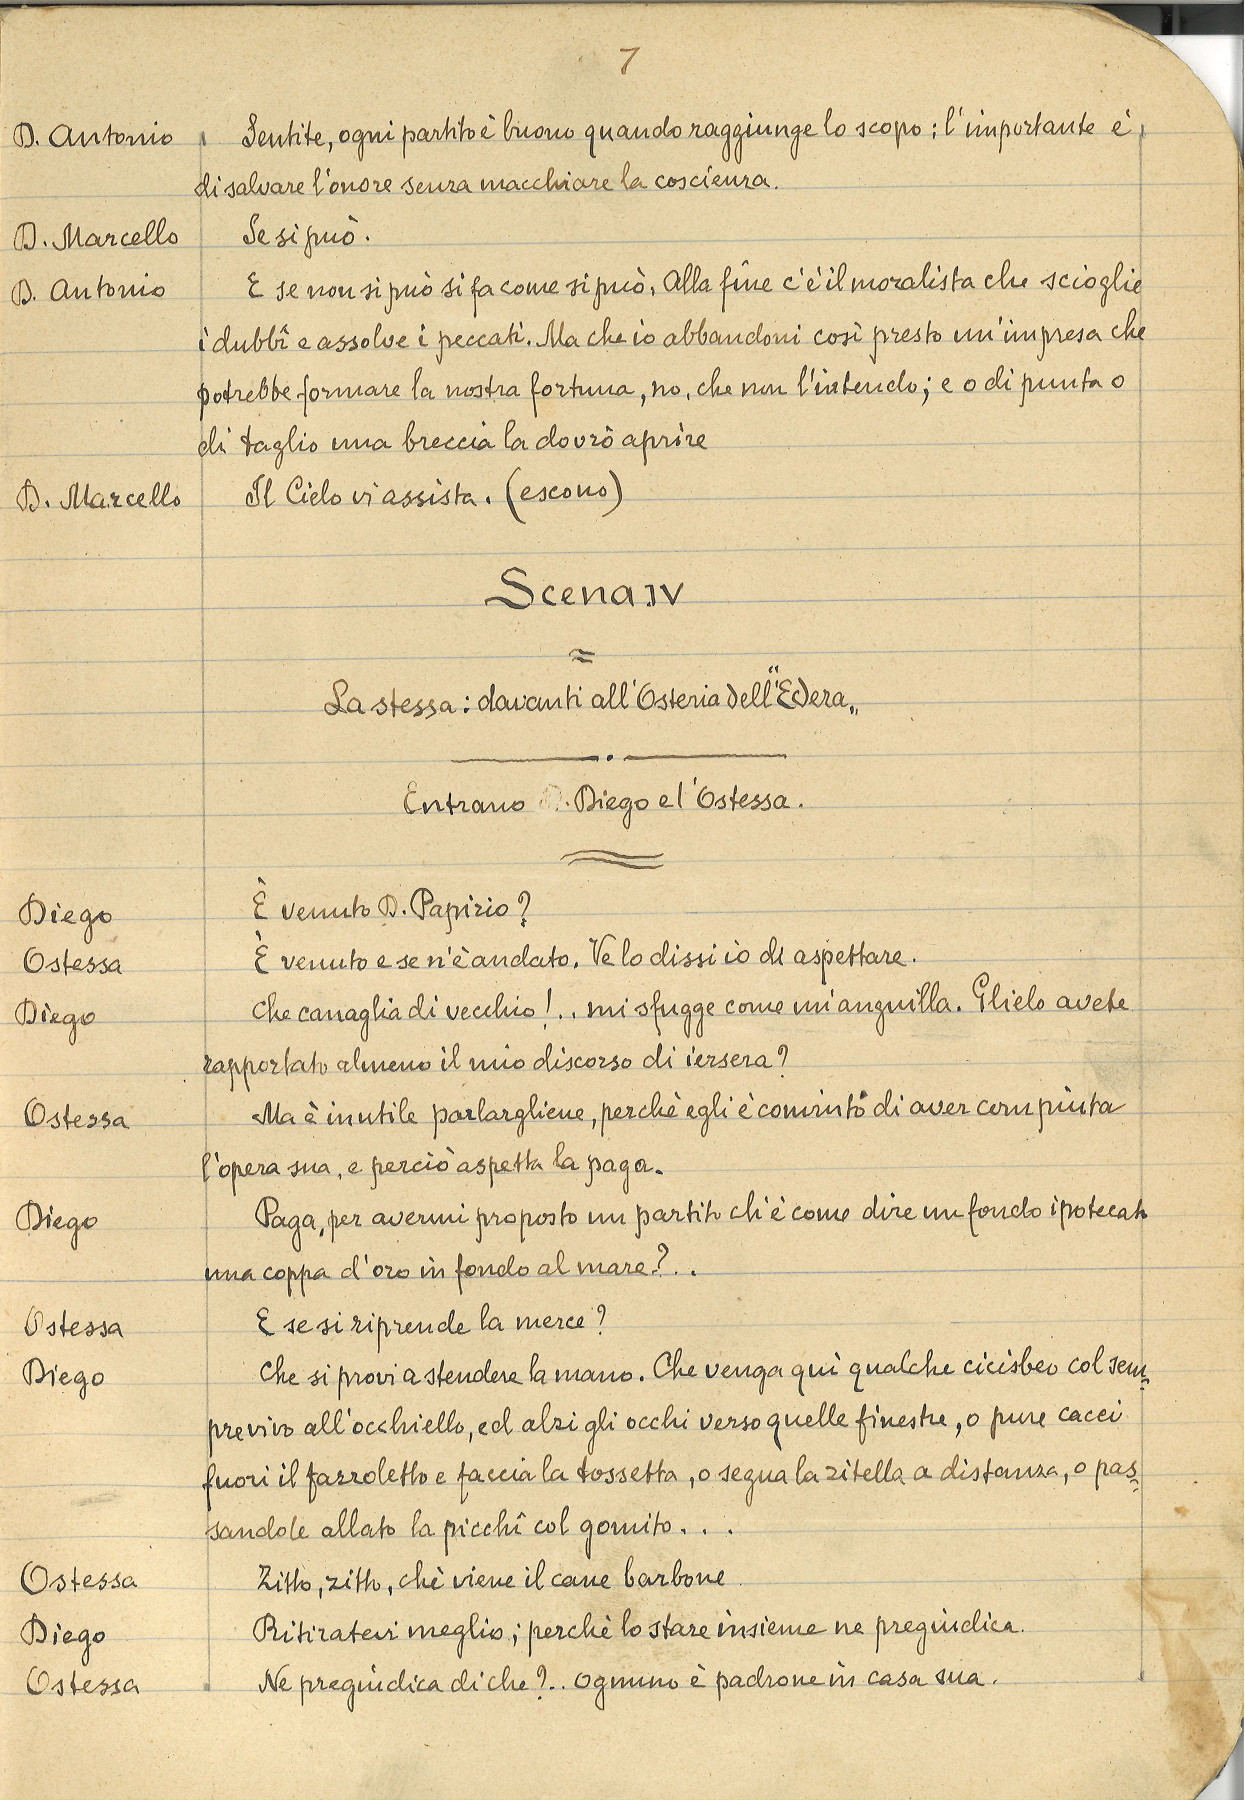 7
D. Antonio Sentite, ogni partito è buono quando raggiunge lo scopo: l'importante è
di salvare l'onore senza macchiare la coscienza.
D. Marcello Se si può.
D. Antonio E se non si può si fa come si può. Alla fine c'è il moralista che scioglie
i dubbî e assolve i peccati. Ma che io abbandoni così presto un'impresa che
potrebbe formare la nostra fortuna, no, che non l'intendo; e o di punta o
di taglio una breccia la dovrò aprire
D. Marcello Il Cielo vi assista. (escono)
Scena IV
La stessa: davanti all'Osteria dell'"Edera„
Entrano D. Diego e l'Ostessa.
Diego È venuto D. Papirio?
Ostessa È venuto e se n'è andato. Ve lo dissi io di aspettare.
Diego Che canaglia di vecchio!.. mi sfugge come un'anguilla. Glielo avete
rapportato almeno il mio discorso di iersera?
Ostessa Ma è inutile parlargliene, perchè egli è convinto di aver compiuta
l'opera sua, e perciò aspetta la paga.
Diego Paga, per avermi proposto un partito ch'è come dire un fondo ipotecato
una coppa d'oro in fondo al mare?..
Ostessa E se si riprende la merce?
Diego Che si provi a stendere la mano. Che venga quì qualche cicisbeo col sem=
previvo all'occhiello, ed alzi gli occhi verso quelle finestre, o pure cacci
fuori il fazzoletto e faccia la tossetta, o segua la zitella a distanza, o pas=
sandole allato la picchî col gomito...
Ostessa Zitto, zitto, chè viene il cane barbone
Diego Ritiratevi meglio; perchè lo stare insieme ne pregiudica.
Ostessa Ne pregiudica di che?.. ognuno è padrone in casa sua.